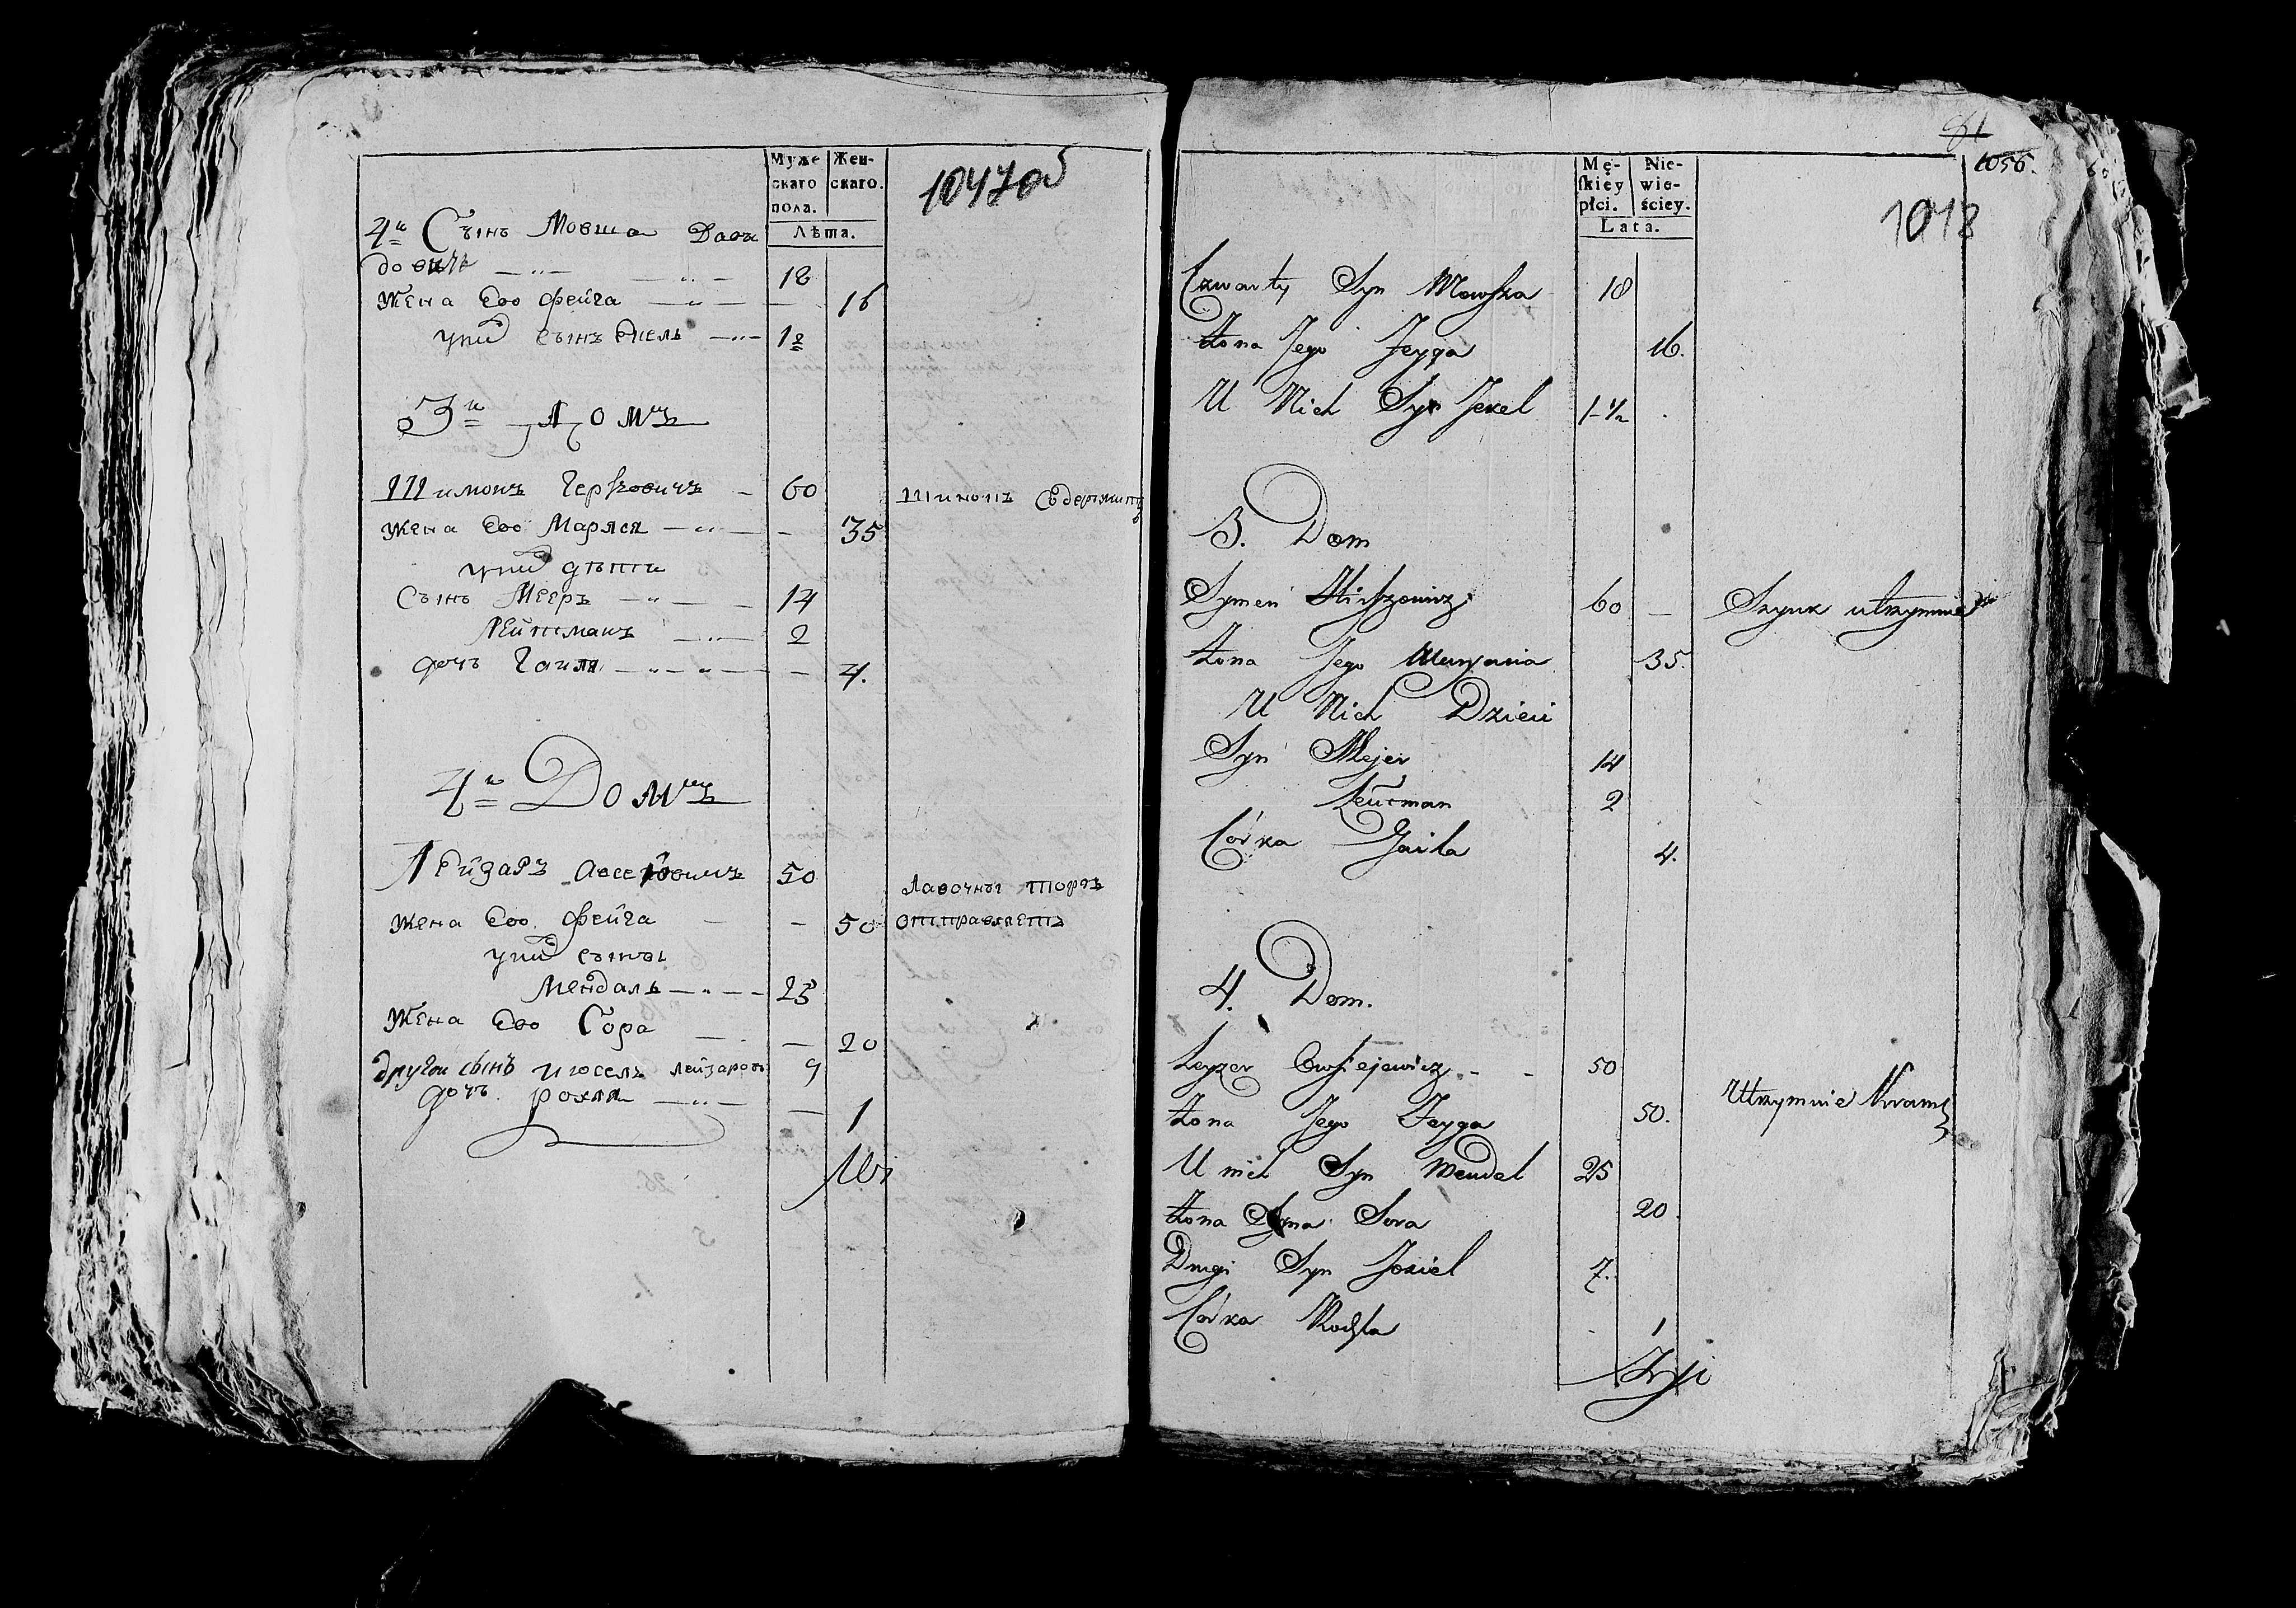 Муже
скаго
пола.
Жен-
скаго.
Лѣта.
1047 об
4й Сынъ Мовша Давы
довичъ 18
Жена Его Фейга 16
у них сынъ 1 1/2
3й Домъ
Шимонъ Герсковичъ 60 Шинокъ Содержитъ
Жена Его Маряся 35
у них дѣти
Сынъ Мееръ 14
Лейтманъ 2
дочь Гаиля 4.
4й Домъ
Лейзаръ Овсеевичъ 50 Лавочны торгъ
Жена Его Фейга 50 отправляетъ
у них сыны
Мендаль 25
Жена Его Сора 20
другои сынъ Иосель Лейзаровъ 9
дочь Рохля 1
81
1056.
1018
Mę-
ſkiey
płci.
Nie-
wie-
ściey.
Lata.
Czwarty Syn Mowsza 18
Żona Jego Feyga 16.
U Nich Syn 1 1/2
3. Dom
Symen Hirszowicz 60 Szynk utrzymuie
Żona Jego Maryasia 35.
U Nich Dzieci
Syn Mejer 14
Leutman 2
Córka Gaila 4.
4. Dom.
Leyzer Owsiejewicz 50
Utrzymuie Kram
Żona Jego Feyga 50.
U nich Syn Mendel 25
Żona Syna Sora 20.
Drugi Syn Josiel 7.
Córka Rochla 1